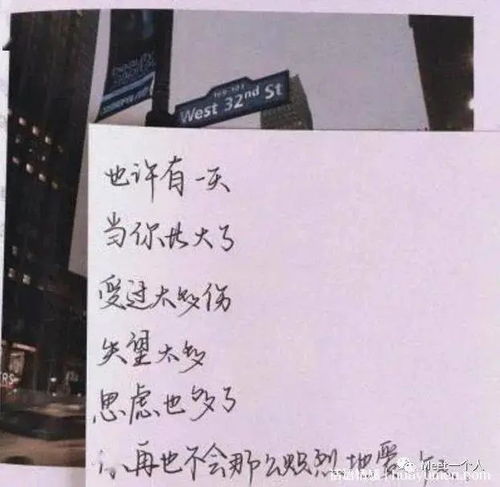 beauty
160-101
West 32nd St
也许有一天
当你长大了
受过太多伤
失望太多
思虑也多了
再也不会那么炽烈地爱
Meet一个人